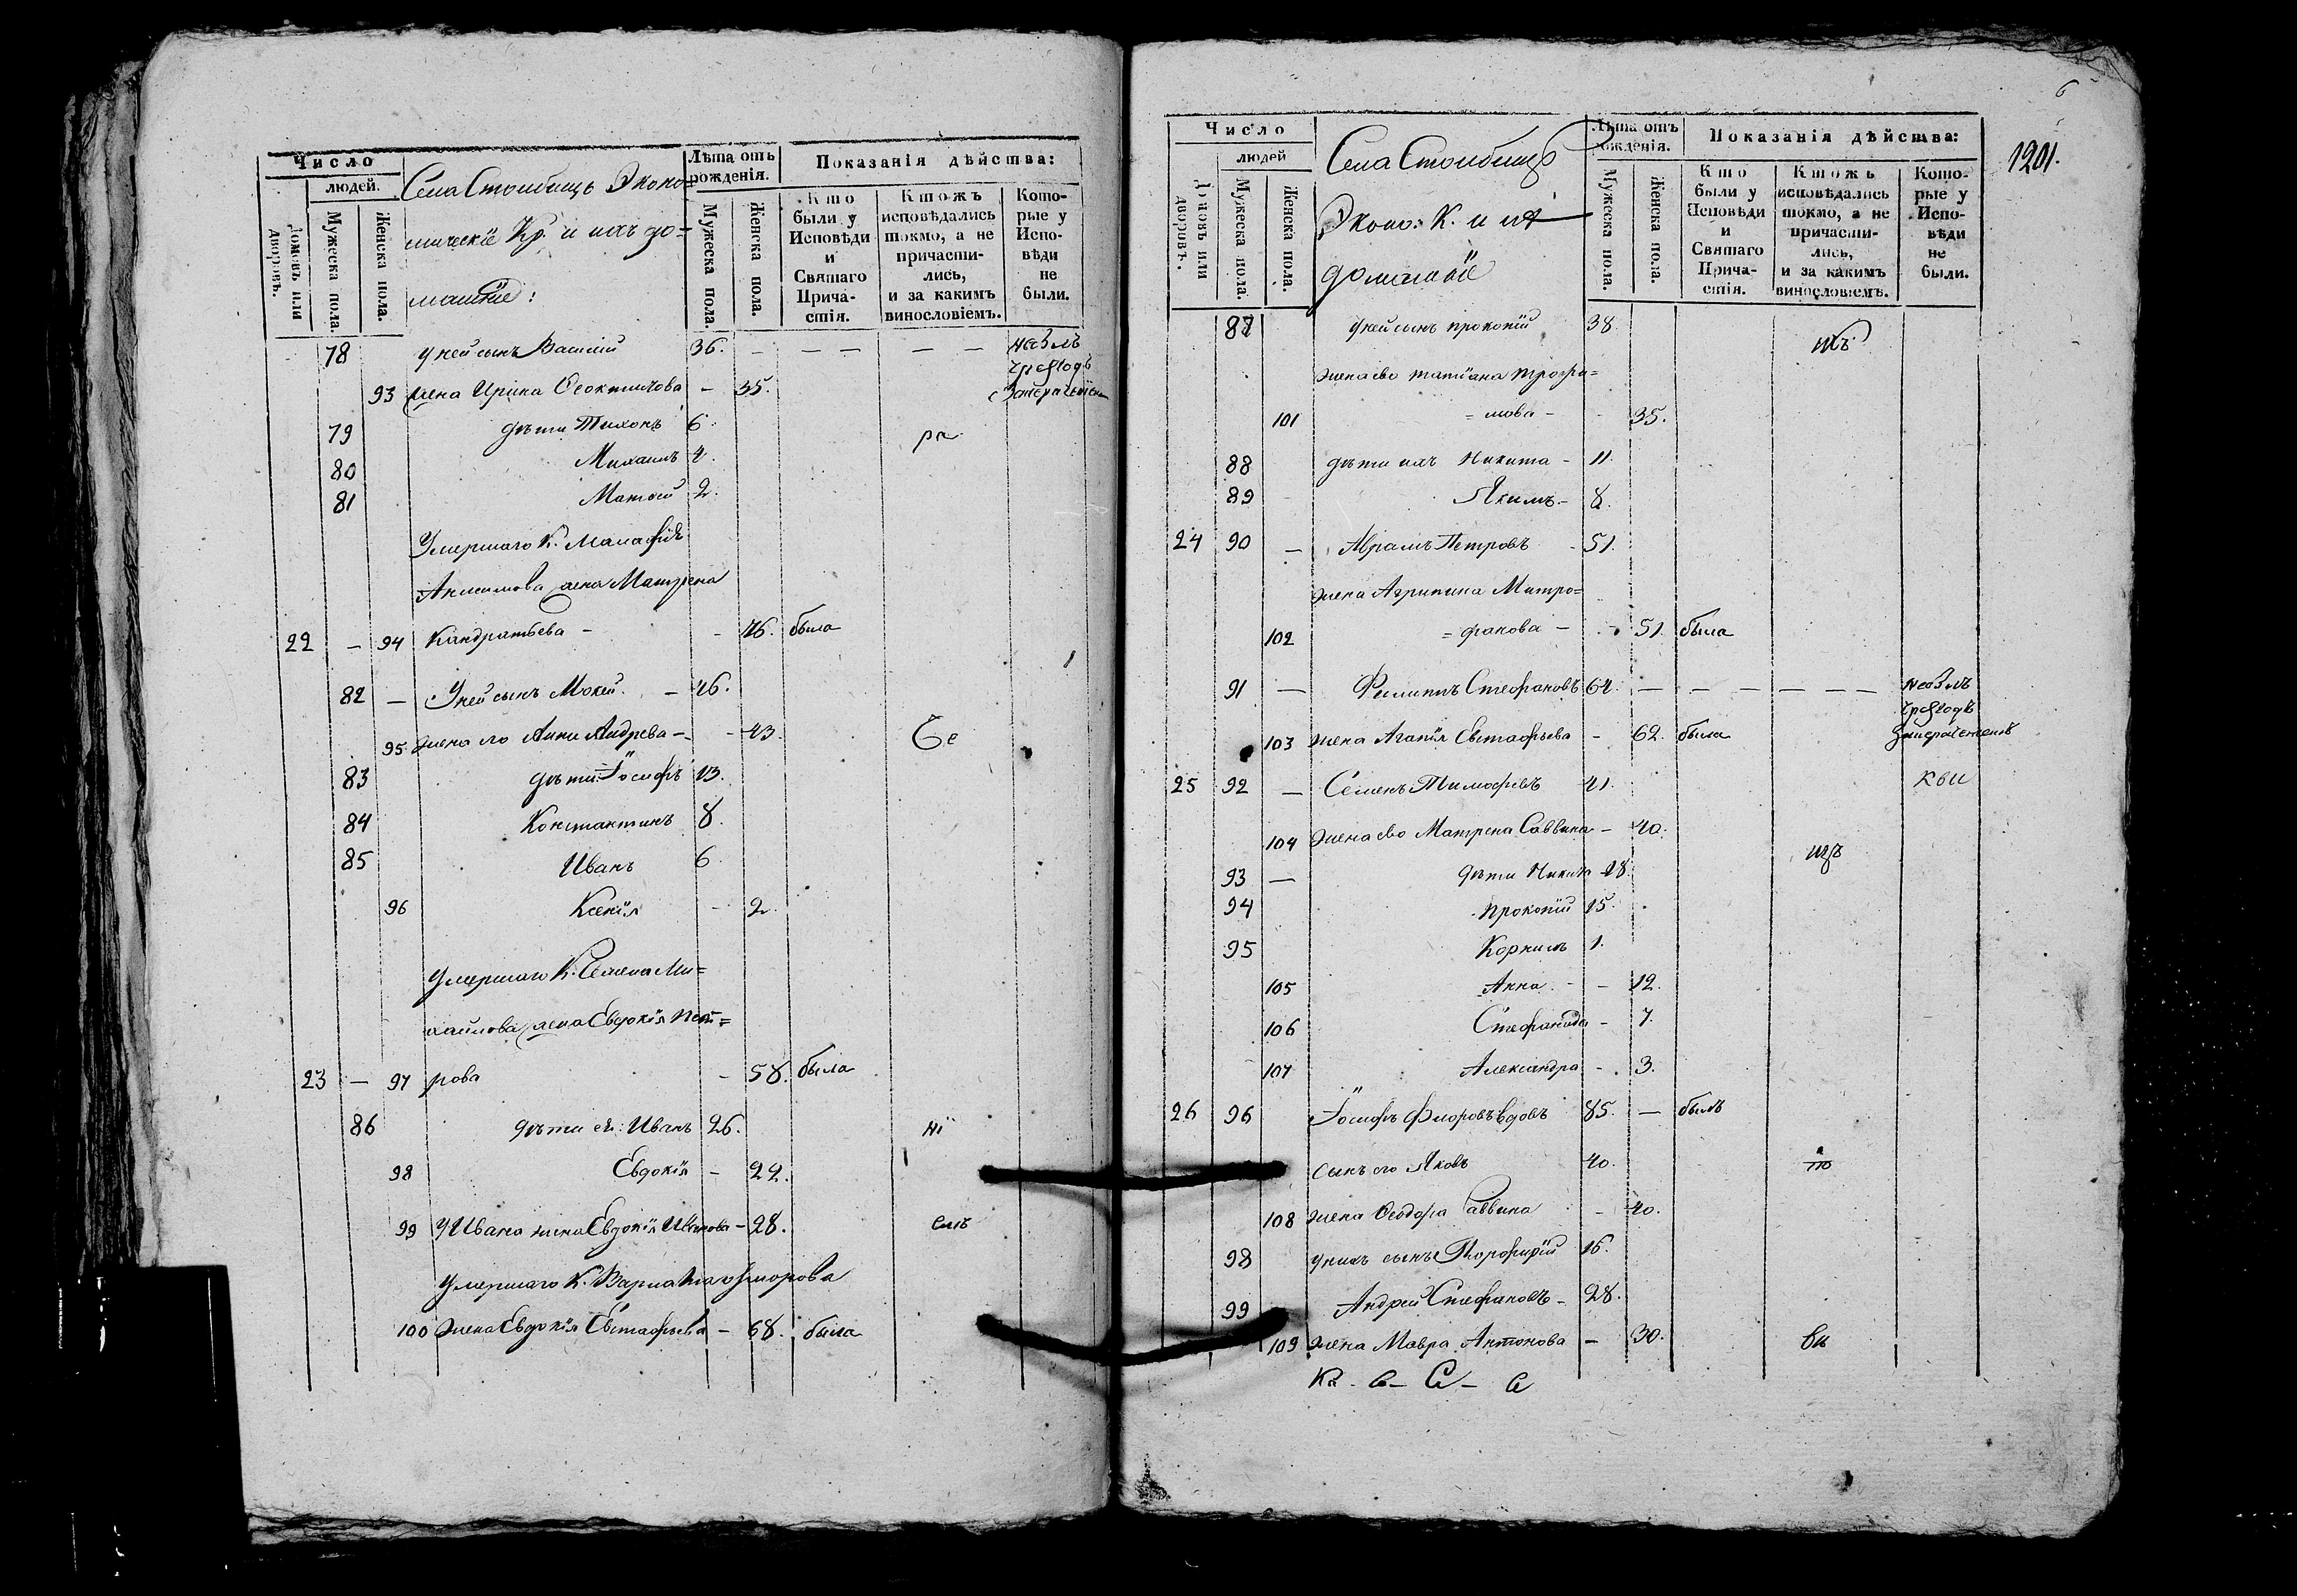 Число
людей.
Домовъ или дворовъ.
Мужеска пола.
Женска пола.
Села Столбищъ Эконо=
мическіе Кр. и ихъ до=
машніе:
Лѣта отъ рожденія.
Мужеска пола.
Женска пола.
Показанія дѣйства:
Кто были у Исповѣди и Святаго Прича- стія.
Ктожъ исповѣдались токмо, а не причасти- лись, и за какимъ винословіемъ.
Кото- рые у Испо- вѣди не были.
78 у ней сынъ Василій 36. — — — — —
93 жена Ирина Феоктистова - 35.
79 дѣти Тихонъ 6.
80 Михаилъ 4.
81 Матвей 2.
Умершаго К.
Анисимова жена Матрена
22 — 94 Кандратьева - - 76. была
82 — У ней сынъ Мокей. - 46.
95 жена его Анна Андрева - - 43.
83 дѣти: Іосифъ 13.
84 Константинъ 8.
85 Иванъ 6.
96 Ксенія - 2.
Умершаго К. Семена Ми=
хайлова жена Евдокія Пет=
23 — 97 рова - 58. была
86 дѣти ея: Иванъ 26. ні
98 Евдокія - 22.
99 У Ивана жена Евдокія Иванова - 28.
Умершаго К. Флорова
100 жена Евдокія Евстафьева - 68. была
6
1201.
Число
людей
Домовъ или дворовъ.
Мужеска пола.
Женска пола.
Села Столбищъ
Эконо: К. и ихъ
домашніе
Лѣта отъ рожденія.
Мужеска пола.
Женска пола.
Показанія дѣйства:
Кто были у Исповѣди и Святаго Прича- стія.
Ктожъ исповѣдались токмо, а не причасти- лись, и за какимъ винословіемъ.
Кото- рые у Испо- вѣди не были.
87 у ней сынъ Прокопій 38.
жена ево Татіана Трофи=
101 = мова - - 35.
88 дѣти ихъ Никита - 11.
89 Якимъ - 8.
24 90 — Аврамъ Петровъ - 51.
жена Агрипина Митро=
102 = фанова - - 51. была
91 — Филиппъ Стефановъ 64. — — — — — —
103 жена Агапія Евстафьева - 62. была
25 92 — Семенъ Тимофѣевъ 41.
104 жена ево Матрена Саввина - 40.
93 — дѣти Никита 18.
94 Прокопій 15.
95 Корнилъ 1.
105 Анна - - 12.
106 Стефанида - 7.
107 Александра - 3.
26 96 Іосифъ Флоровъ вдовъ 85. — былъ
сынъ его Яковъ 40.
108 жена Феодора Саввина - 40.
98 у нихъ сынъ Порфирій 16.
99 Андрей Стефановъ - 28.
109 жена Мавра Антонова - 30.